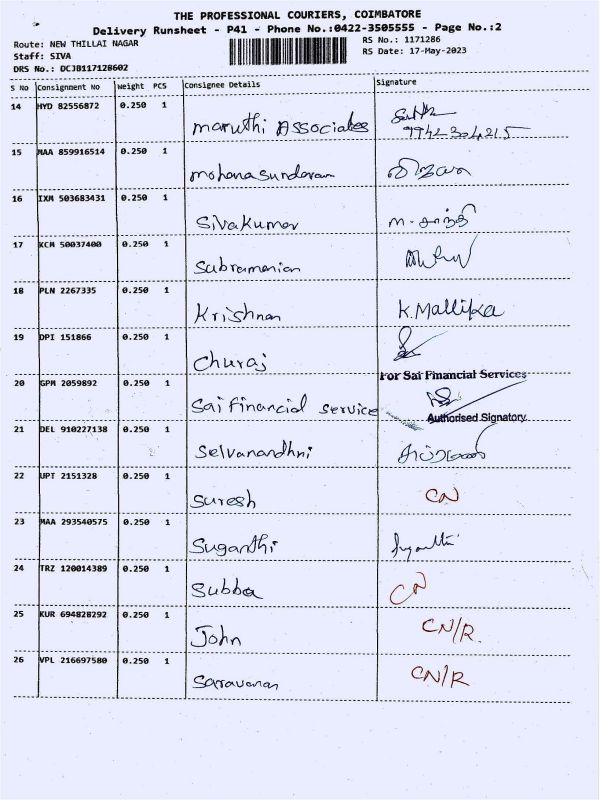 THE PROFESSIONAL COURIERS, COIMBATORE
Delivery Runsheet - P41 - Phone No.:0422-3505555 - Page No.:2
Route: NEW THILLAI NAGAR
RS No.: 1171286
Staff: SIVA
RS Date: 17-May-2023
DRS No.: DCJB117128602
S No Consignment No Weight PCS Consignee Details Signature
14 HYD 82556872 0.250 1 Maruthi Associates
9942304215
15 MAA 859916514 0.250 1 Mohanasundaram
16 IXM 503683431 0.250 1 Sivakumar
17 KCM 50037400 0.250 1 Subramanian
18 PLN 2267335 0.250 1 Krishnan K. Mallika
19 DPI 151866 0.250 1 Churaj
For Sai Financial Services
20 GPM 2059892 0.250 1 Sai financial service
Authorised Signatory.
21 DEL 910227138 0.250 1 Selvanandhni
22 UPT 2151328 0.250 1 Suresh CN
23 MAA 293540575 0.250 1 Suganthi
24 TRZ 120014389 0.250 1 Subba CN
25 KUR 694828292 0.250 1 John CN/R.
26 VPL 216697580 0.250 1 Saravanan CN/R